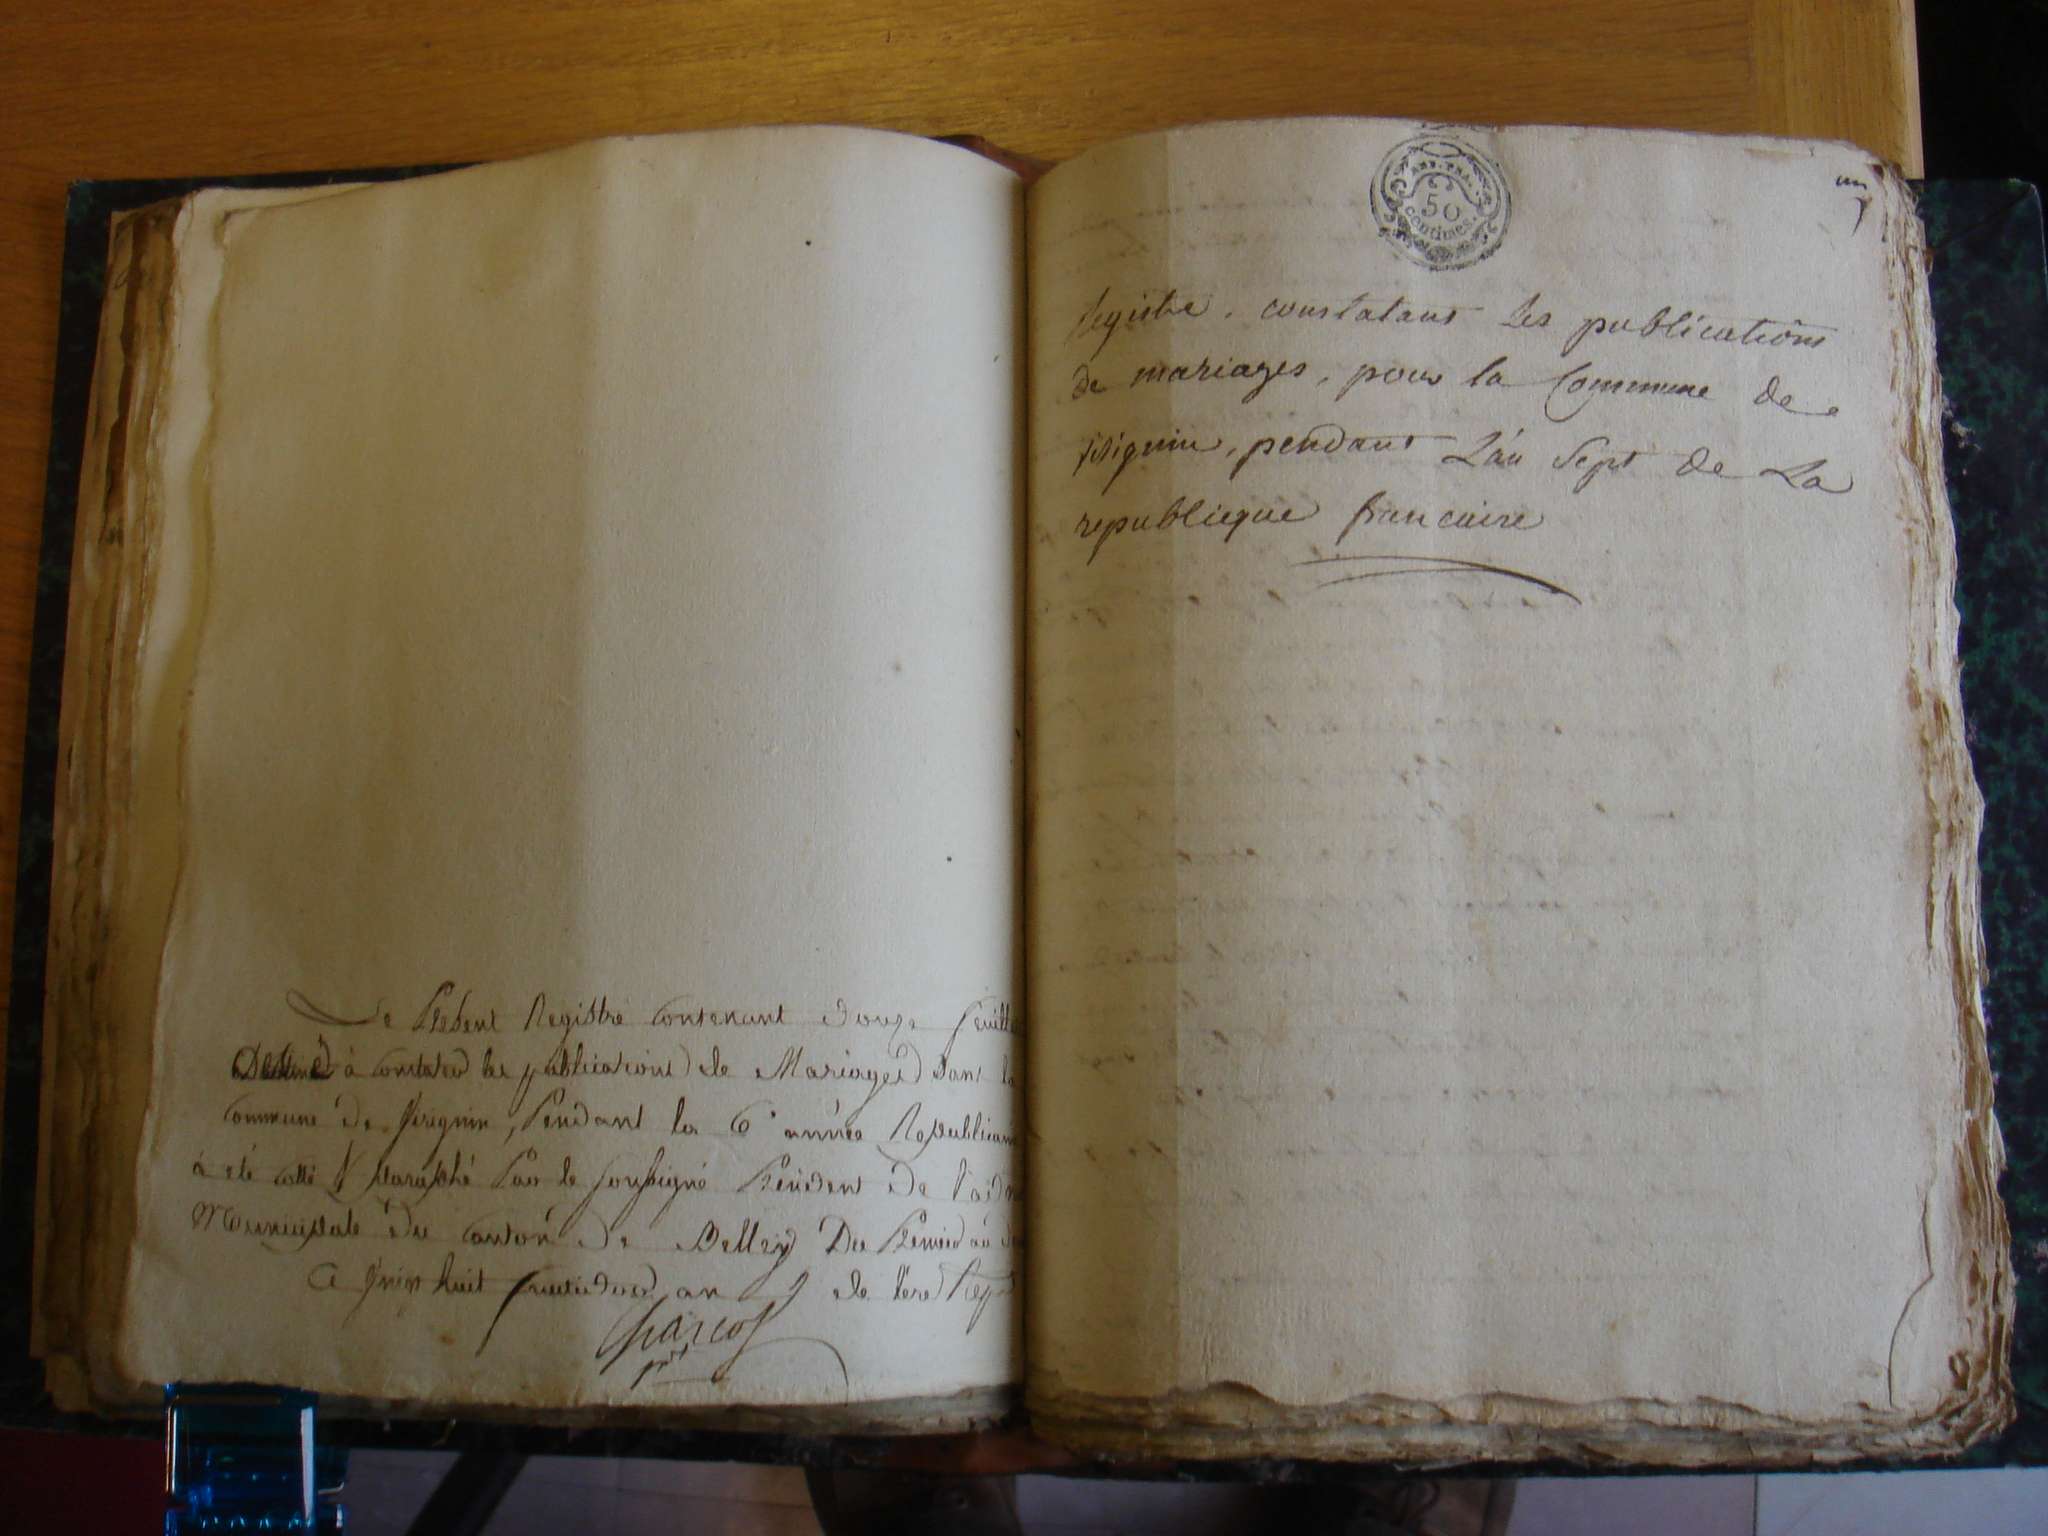 Le Présent Registre contenant douze feuille
Destiné à constater les publications de Mariages dans la
commune de Virignin, Pendant la 6e année Republicain
à eté cotté & paraphé Par le soussigné Président de l'adm
Municipale du canton de Belley Du Premier au
Ce vingt huit fructidor an 5 de l'ere Rep
un
ART.
50
centimes.
Registre, constatant Les publications
de mariages, pour la Commune de
virignin, pendant L'an Sept de La
republicque francaise